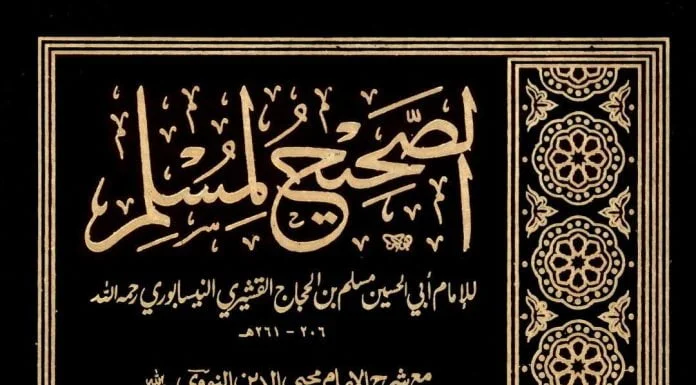 الصَّحِيحُ لِمُسْلِمٍ
للإمام أبي الحسين مسلم بن الحجاج القشيري النيسابوري رحمه الله
٢٠٦ - ٢٦١هـ
مع شرح الإمام محيي الدين النووي